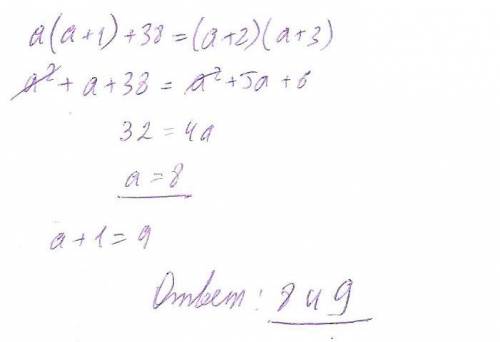 a(a+1)+38=(a+2)(a+3)
a²+a+38=a²+5a+6
32=4a
a=8
a+1=9
Ответ: 8 и 9